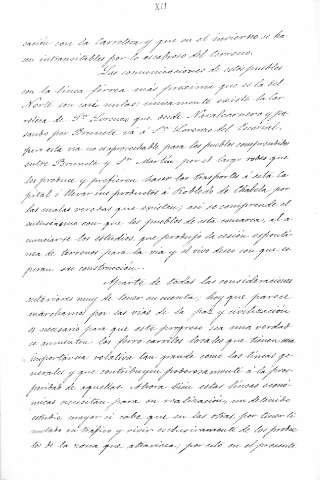 XII
cación con la carretera y que en el invierno se ha
cen intransitables por lo escabroso del terreno.
Las comunicaciones de estos pueblos
con la línea férrea más próxima que es la del
Norte son casi nulas: unicamente existe la car
retera de Sn. Lorenzo que desde Navalcarnero y pa
sando por Brunete va á Sn. Lorenzo del Escorial,
pero esta via no es aprovechable para los pueblos comprendidos
entre Brunete y Sn. Martin por el largo rodeo que
les produce y prefieren hacer los trasportes á esta ca
pital ó llevar sus productos á Robledo de Chavela, por
las malas veredas que existen; asi se comprende el
entusiasmo con que los pueblos de esta comarca, al a
nunciarse los estudios, que produjo la cesión espontá
nea de terrenos para la via y el vivo deseo con que es
peran su construcción.
Aparte de todas las consideraciones
anteriores muy de tener en cuenta, hoy que parece
marchamos por las vias de la paz y civilización
es necesario para que este progreso sea una verdad
se aumenten los ferro carriles locales que tienen una
importancia relativa tan grande como las lineas ge
nerales y que contribuyen poderosamente á la pros
peridad de aquellas. Ahora bien estas lineas econó
micas necesitan para su realización, un detenido
estudio, mayor si cabe que en las otras, por tener li
mitado su tráfico y vivir exclusivamente de los produc
tos de la zona que atraviesa; por esto en el presente